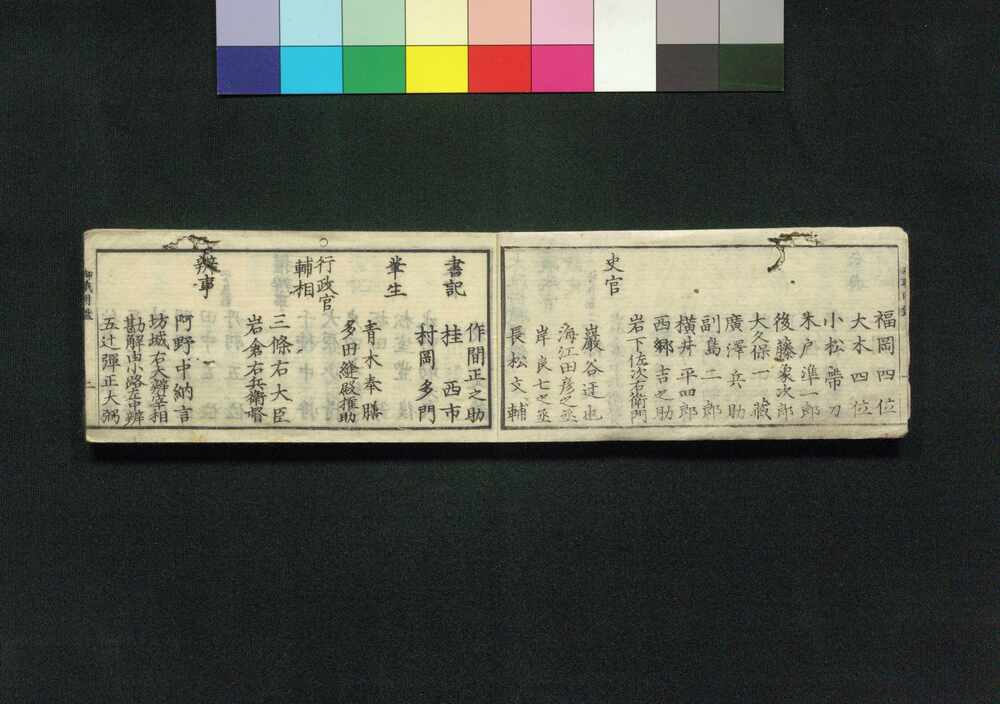 福岡四位
大木四位
小松帶刀
木戸準一郎
後藤象次郎
大久保一藏
廣澤兵助
副島二郎
横井平四郎
西郷吉之助
岩下佐次右衛門
史官
巖谷迂也
海江田彦之丞
岸良七之丞
長松文輔
書記
作間正之助
桂西市
村岡多門
筆生
青木奉膳
多田縫殿權助
○行政官
輔相
三條右大臣
岩倉右兵衛督
辨事
阿野中納言
坊城右大辨宰相
勘解由小路左中辨
五辻彈正大弼
二